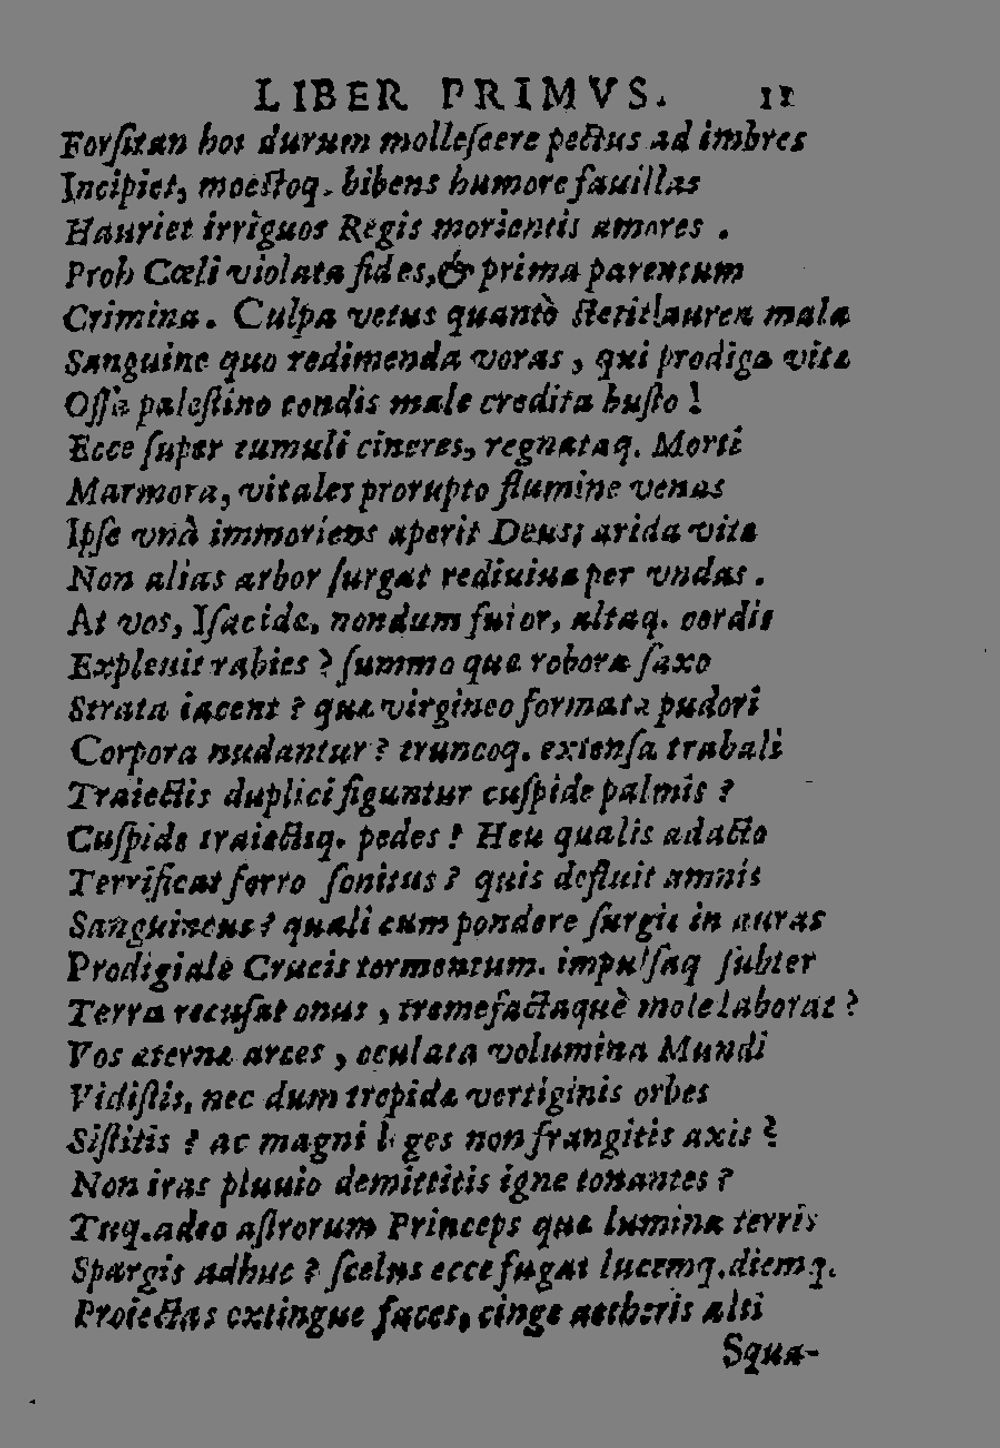 LIBER PRIMVS. 11
Forſitan hos durum molleſcere pectus ad imbres
Incipiet, moeſtoq. bibens humore fauillas
Hauriet irriguos Regis morientis amores .
Proh Cœli violata fides, & prima parentum
Crimina. Culpa vetus quantò ſtetit! aurea mala
Sanguine quo redimenda voras, qui prodiga vitæ
Oſſa paleſtino condis male credita buſto !
Ecce ſuper tumuli cineres, regnataq. Morti
Marmora, vitales prorupto flumine venas
Ipſe vnà immoriens aperit Deus; arida vitæ
Non alias arbor ſurgat rediuiua per vndas .
At vos, Iſacidæ, nondum furor, altaq. cordis
Expleuit rabies ? ſummo quæ robora ſaxo
Strata iacent ? quæ virgineo formata pudori
Corpora nudantur ? truncoq. extenſa trabali
Traiectis duplici figuntur cuſpide palmis ?
Cuſpide traiectisq. pedes ! Heu qualis adacto
Terrificat ferro ſonitus ? quis defluit amnis
Sanguineus ? quali cum pondere ſurgit in auras
Prodigiale Crucis tormentum. impulſaq ſubter
Terra recuſat onus, tremefactaquè mole laborat ?
Vos æternæ arces, oculata volumina Mundi
Vidiſtis, nec dum trepidæ vertiginis orbes
Siſtitis ? ac magni l ges non frangitis axis ?
Non iras pluuio demittitis igne tonantes ?
Tuq. adeo aſtrorum Princeps quæ lumina terris
Spargis adhuc ? ſcelus ecce fugat lucemq. diemq.
Proiectas extingue faces, cinge aetheris alti
Squa-